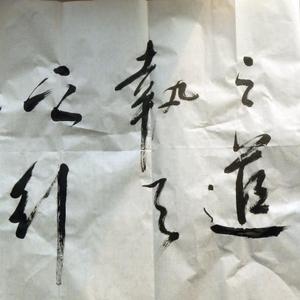 之道
執天
之行